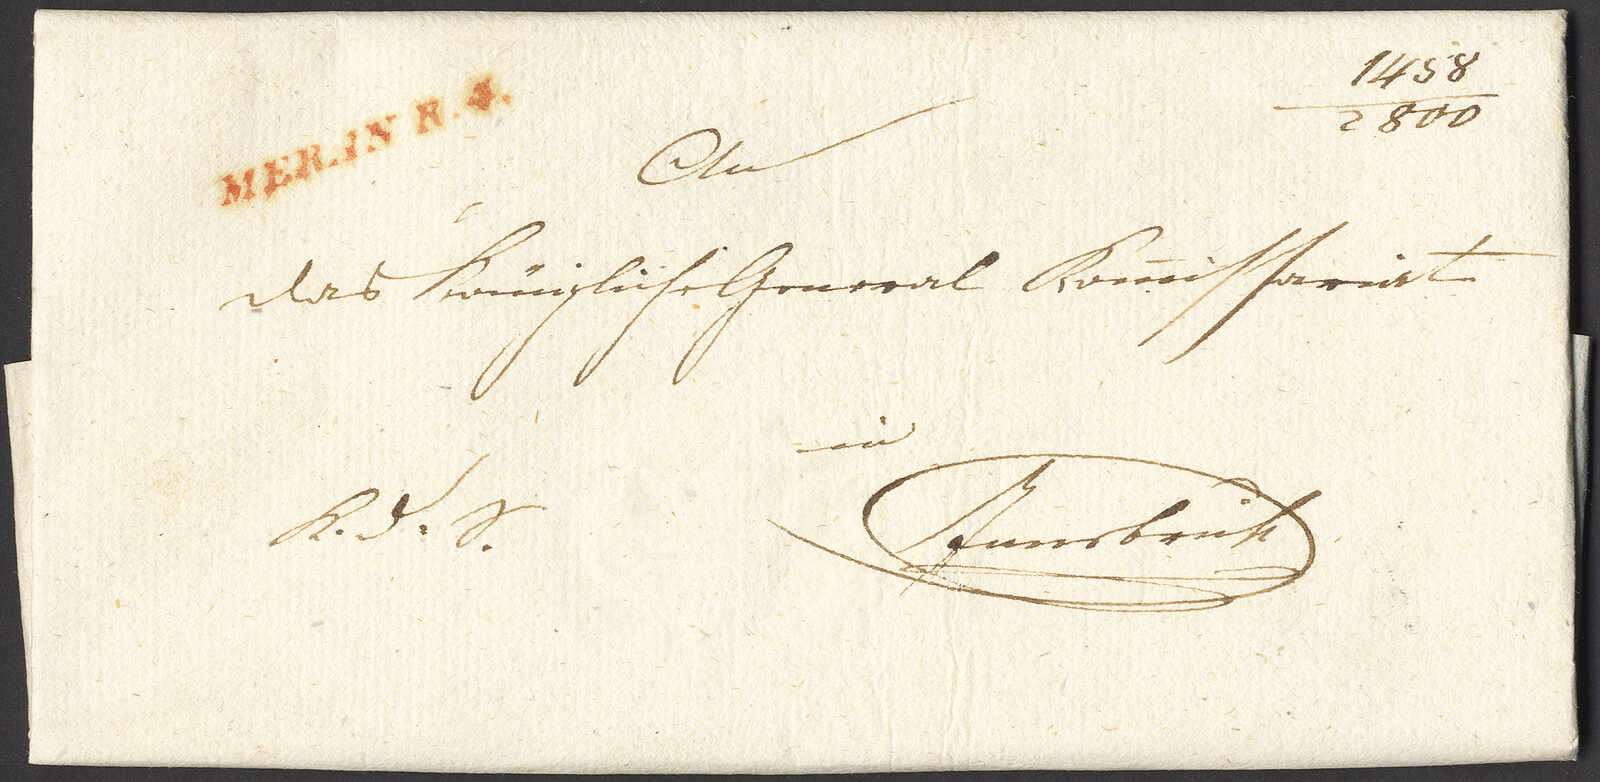 MERAN R. 4.
1458
2800
An
das Königliche General Kom̅issariat
in
K. d. S.
Innsbruck